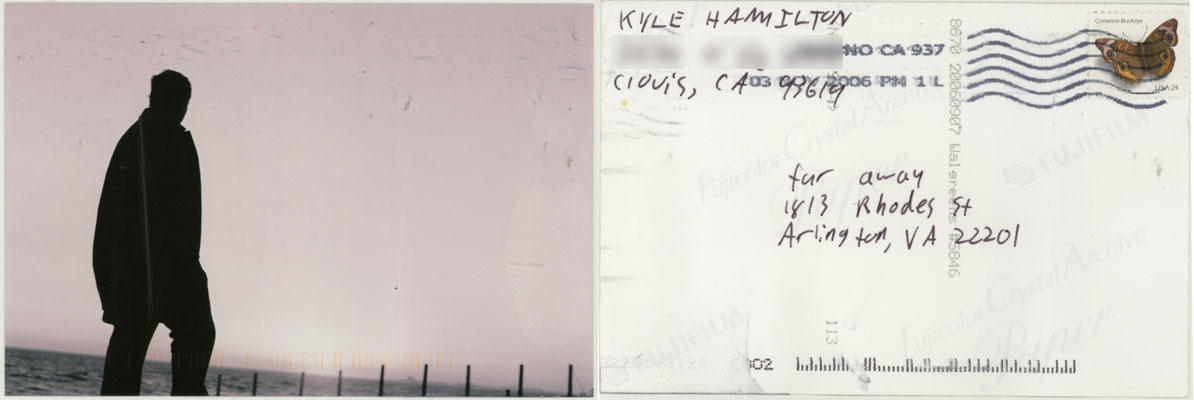 KYLE HAMILTON
NO CA 937
Clovis, CA 93619
03 NOV 2006 PM 1 L
Common Buckeye
USA 24
far away
1813 Rhodes St
Arlington, VA 22201
8670 20060907 Walgreens #5846
Fujicolor Crystal Archive
Paper
FUJIFILM
113
FUJIFILM
Fujicolor Crystal Archive
Paper